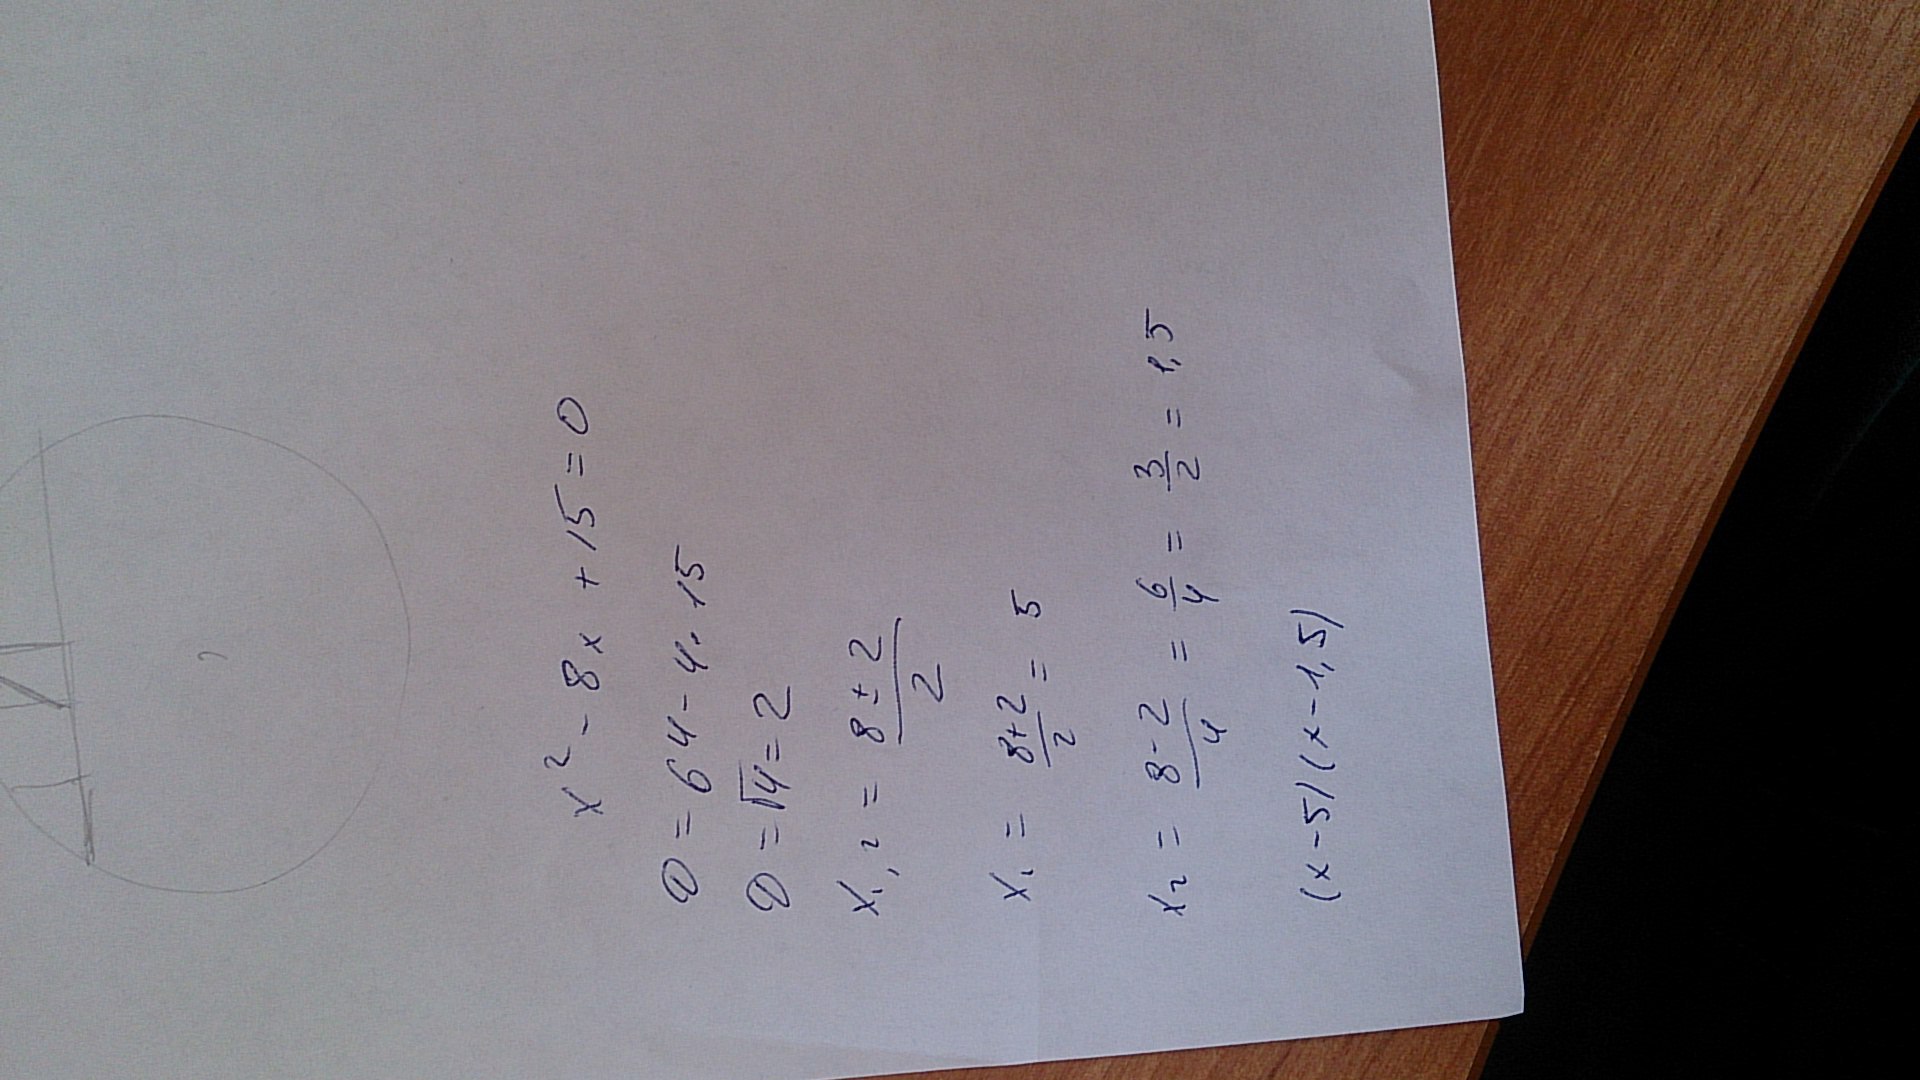 x² - 8x + 15 = 0
D = 64 - 4 · 15
D = √4 = 2
x₁,₂ = (8 ± 2)/2
x₁ = (8+2)/2 = 5
x₂ = (8-2)/4 = 6/4 = 3/2 = 1,5
(x-5)(x-1,5)